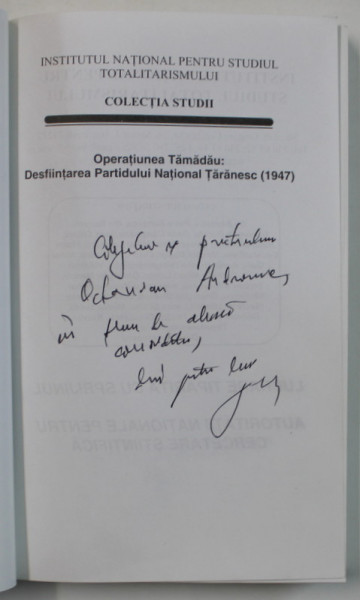 INSTITUTUL NAȚIONAL PENTRU STUDIUL
TOTALITARISMULUI
COLECȚIA STUDII
Operațiunea Tămădău:
Desființarea Partidului Național Țărănesc (1947)
Colegului și prietenului
Octavian
în semn de aleasă